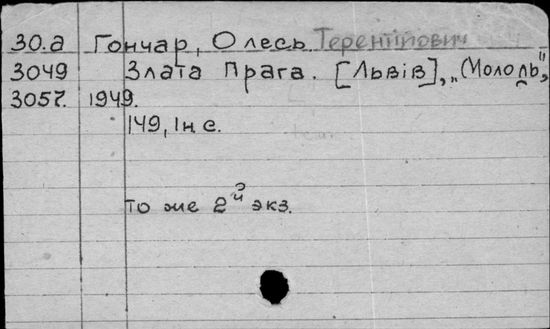 30.а Гончар, Олесь Терентійович
3049 Злата Прага. [Львів], „Молодь",
3057. 1949.
149, Ін с.
То же 2й экз.